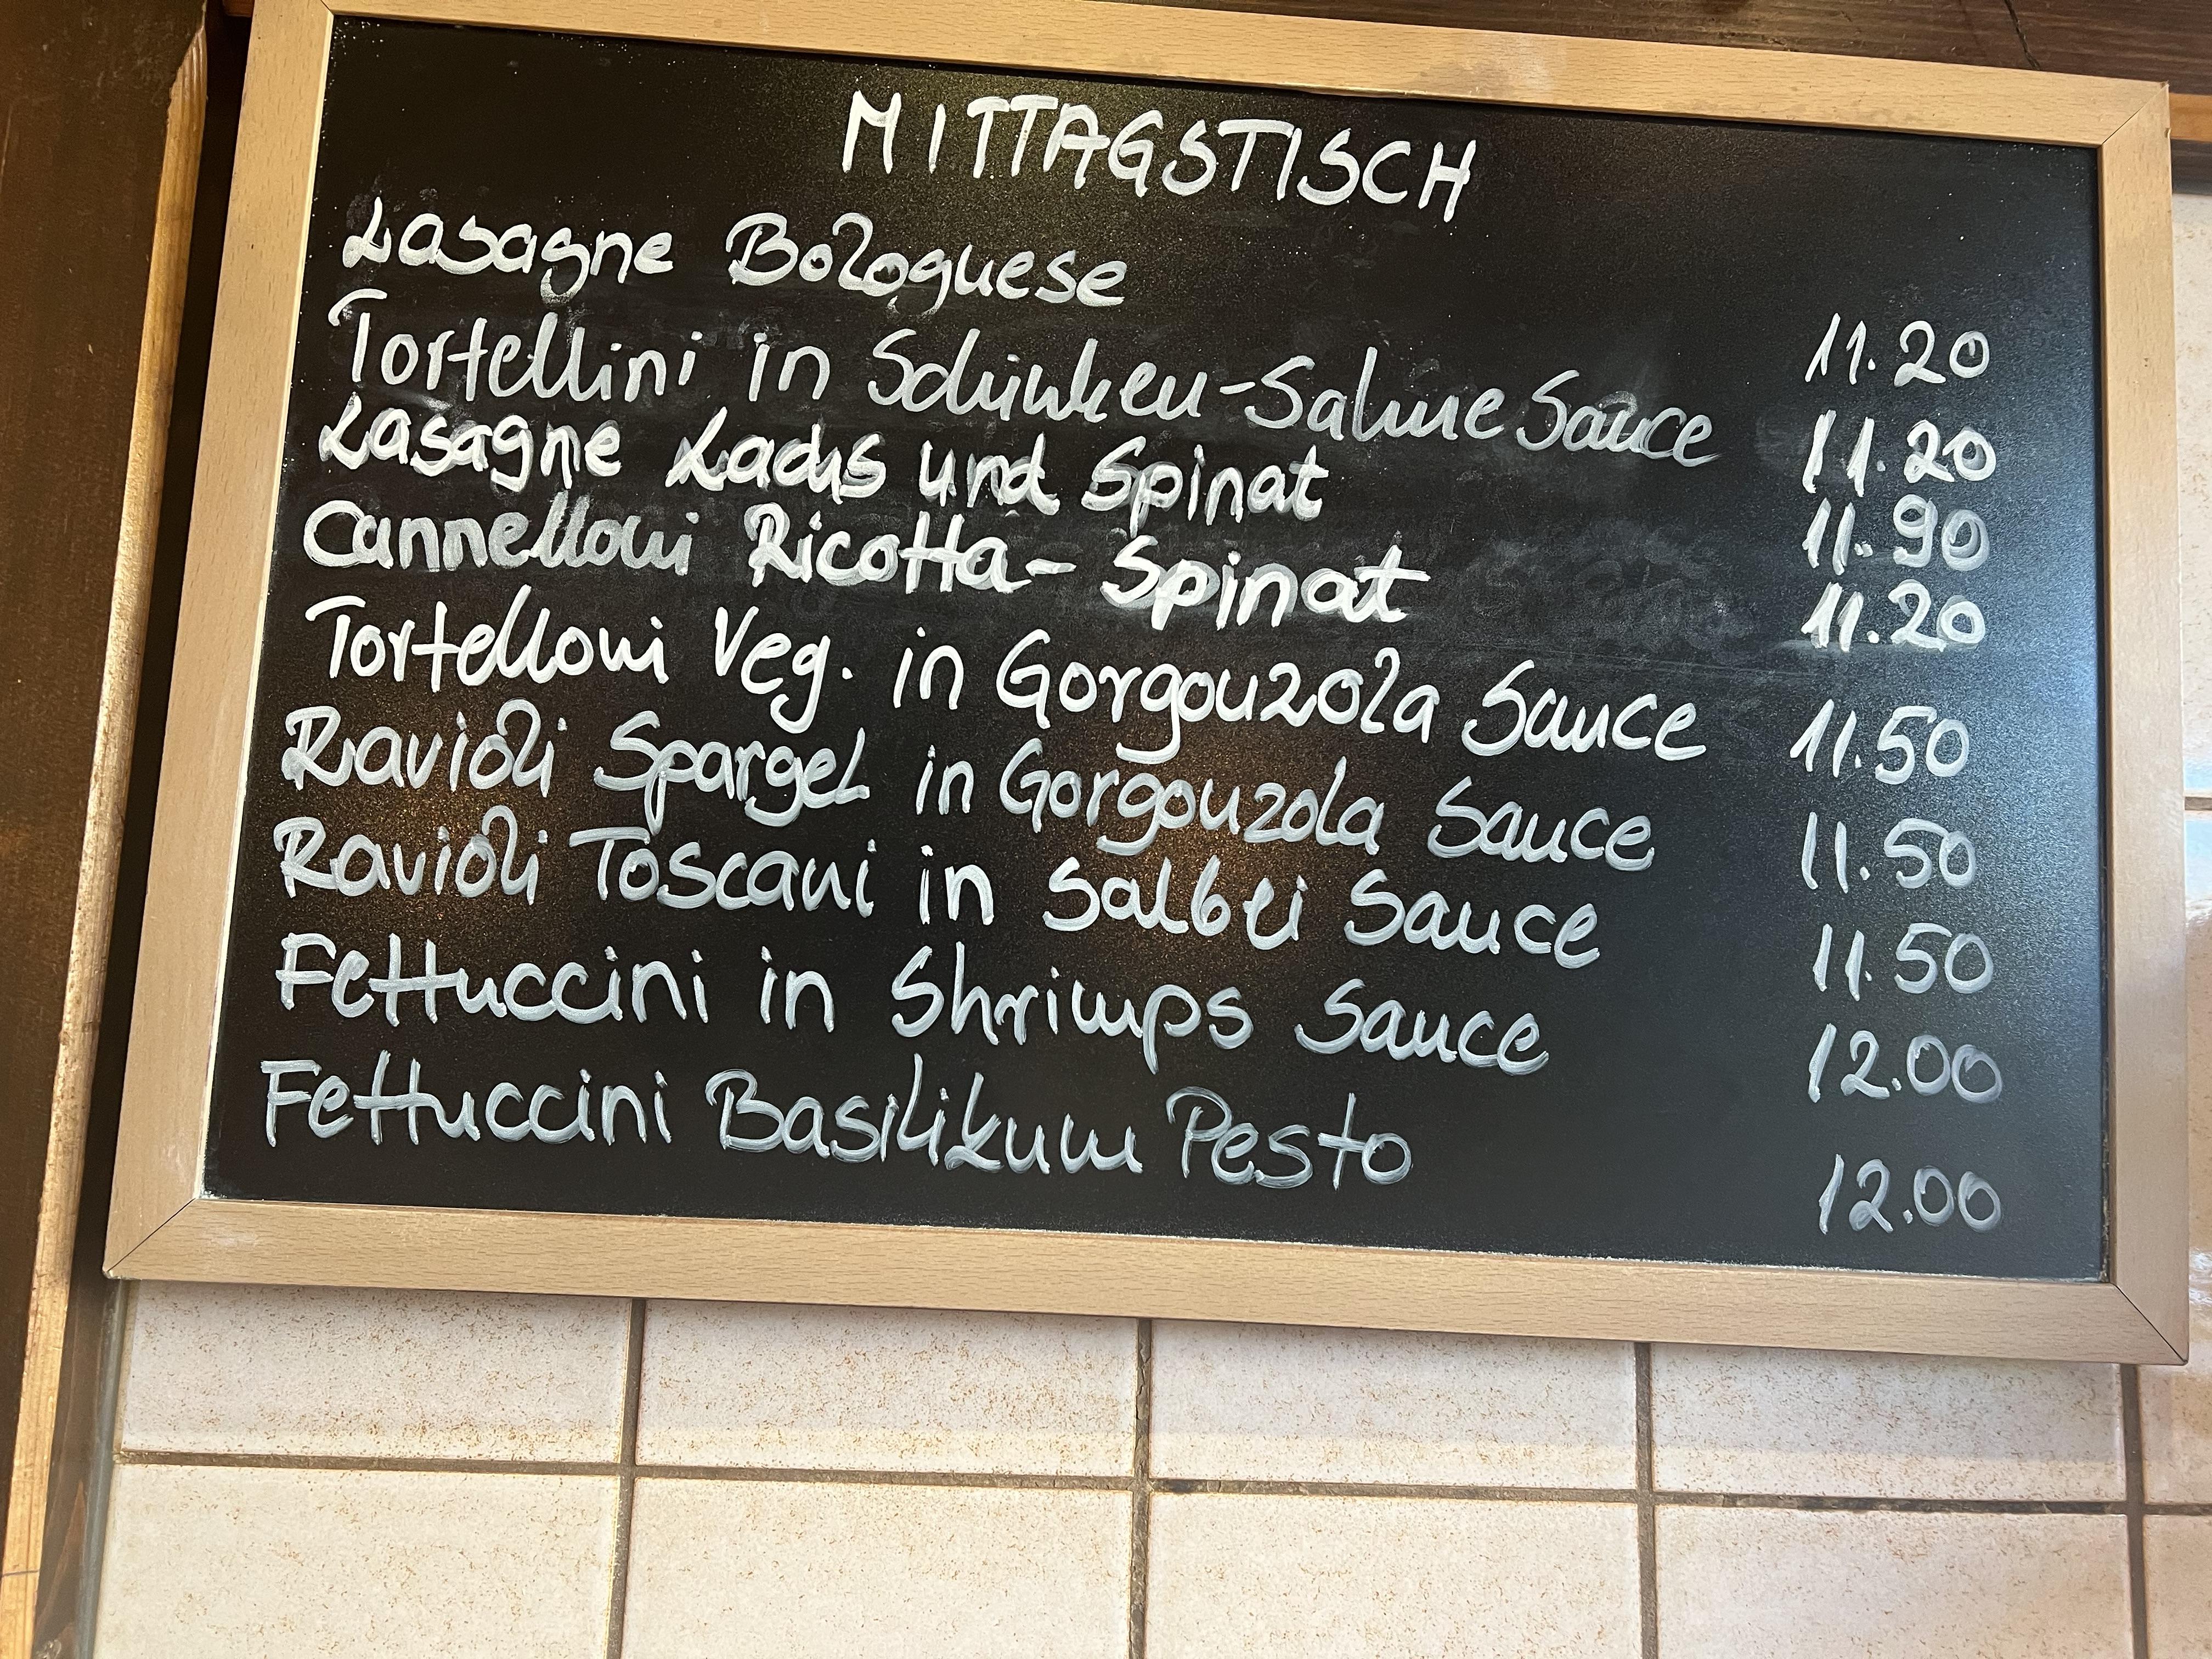 MITTAGSTISCH
Lasagne Bolognese 11.20
Tortellini in Schinken-Sahne Sauce 11.20
Lasagne Lachs und Spinat 11.90
Cannelloni Ricotta-Spinat 11.20
Tortelloni Veg. in Gorgonzola Sauce 11.50
Ravioli Spargel in Gorgonzola Sauce 11.50
Ravioli Toscani in Salbei Sauce 11.50
Fettuccini in Shrimps Sauce 12.00
Fettuccini Basilikum Pesto 12.00